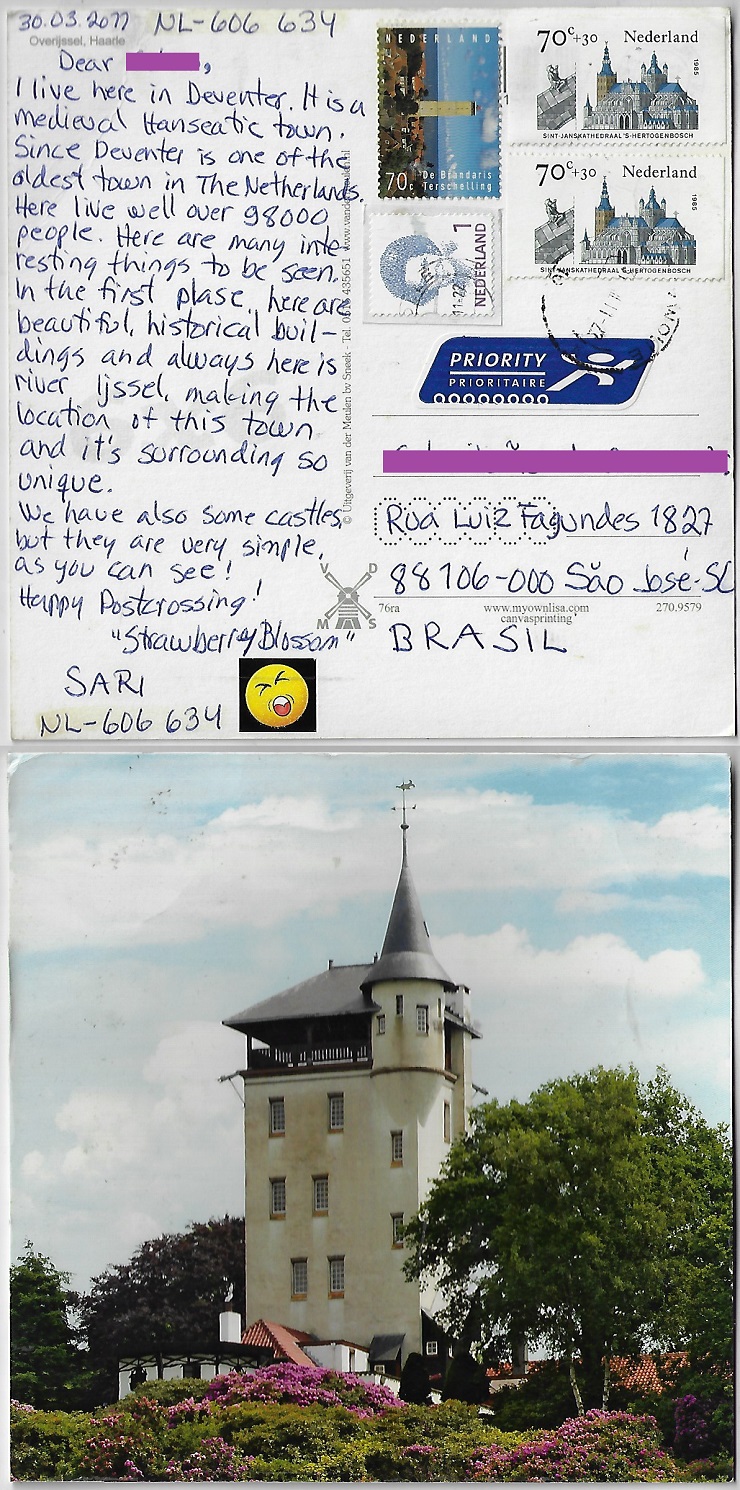 30.03.2011 NL-606 634
Overijssel, Haarle
Dear
I live here in Deventer. It is a
medieval Hanseatic town.
Since Deventer is one of the
oldest town in The Netherlands.
Here live well over 98000
people. Here are many inte
resting things to be seen.
In the first plase, here are
beautiful, historical buil-
dings and always here is
river Ijssel, making the
location of this town
and it's surrounding so
unique.
We have also some castles,
but they are very simple,
as you can see!
Happy Postcrossing!
"Strawberry Blossom"
SARI
NL-606 634
© Uitgeverij van der Meulen bv Sneek - Tel. 435651
V D
M S
NEDERLAND
70c De Brandaris
Terschelling
70c+30 Nederland
1985
SINT-JANSKATHEDRAAL 'S-HERTOGENBOSCH
70c+30 Nederland
1985
SINT-JANSKATHEDRAAL 'S-HERTOGENBOSCH
1
NEDERLAND
PRIORITY
PRIORITAIRE
Rua Luiz Fagundes 1827
88106-000 São José-SC
76ra www.myownlisa.com 270.9579
canvasprinting
BRASIL